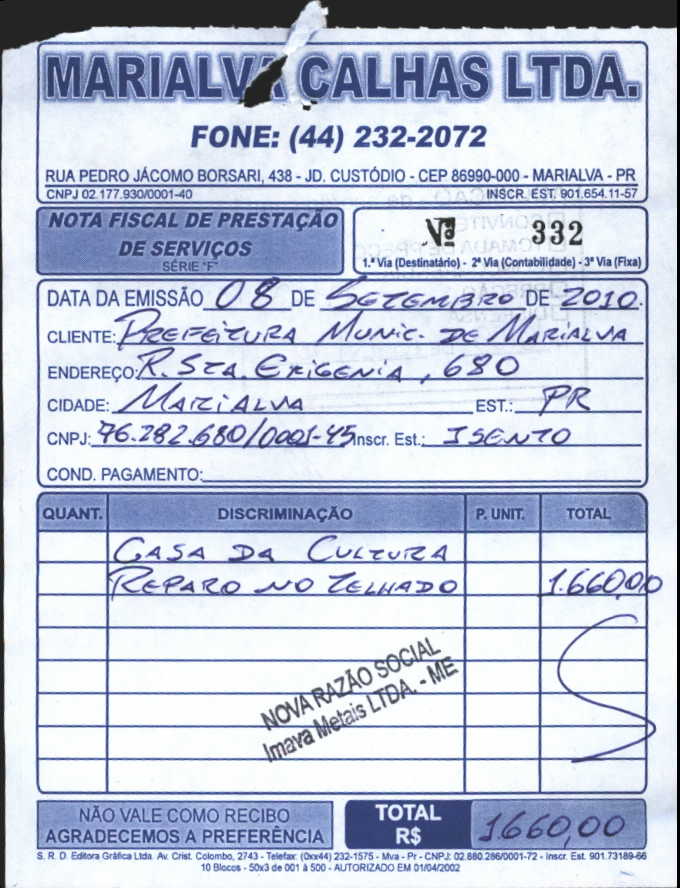 MARIALVA CALHAS LTDA.
FONE: (44) 232-2072
RUA PEDRO JÁCOMO BORSARI, 438 - JD. CUSTÓDIO - CEP 86990-000 - MARIALVA - PR
CNPJ 02.177.930/0001-40 INSCR. EST. 901.654.11-57
NOTA FISCAL DE PRESTAÇÃO
DE SERVIÇOS
SÉRIE "F"
Nº 332
1.ª Via (Destinatário) - 2ª Via (Contabilidade) - 3ª Via (Fixa)
DATA DA EMISSÃO 08 DE SETEMBRO DE 2010.
CLIENTE: PREFEITURA MUNIC. DE MARIALVA
ENDEREÇO: R. STA. EFIGENIA, 680
CIDADE: MARIALVA EST.: PR
CNPJ: 76.282.680/0001-45 Inscr. Est.: ISENTO
COND. PAGAMENTO:
QUANT. DISCRIMINAÇÃO P. UNIT. TOTAL
CASA DA CULTURA
REPARO NO TELHADO 1.660,00
NOVA RAZÃO SOCIAL
Imava Metais LTDA. - ME
NÃO VALE COMO RECIBO
AGRADECEMOS A PREFERÊNCIA
TOTAL
R$ 1660,00
S. R. D. Editora Gráfica Ltda. Av. Crist. Colombo, 2743 - Telefax: (0xx44) 232-1575 - Mva - Pr - CNPJ: 02.880.286/0001-72 - Inscr. Est. 901.73189-66
10 Blocos - 50x3 de 001 à 500 - AUTORIZADO EM 01/04/2002